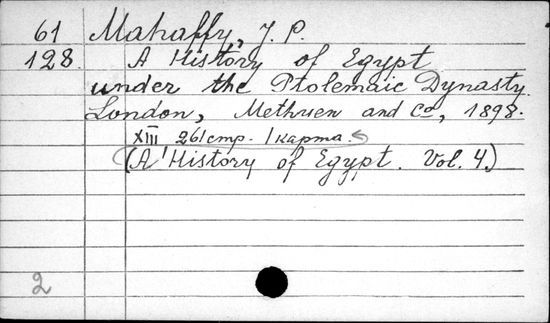 61 Mahaffy, J. P.
128. A History of Egypt
under the Ptolemaic Dynasty.
London, Methuen and Co, 1898.
XIII 261 стр. 1 карта.
(A History of Egypt. Vol. 4.)
2